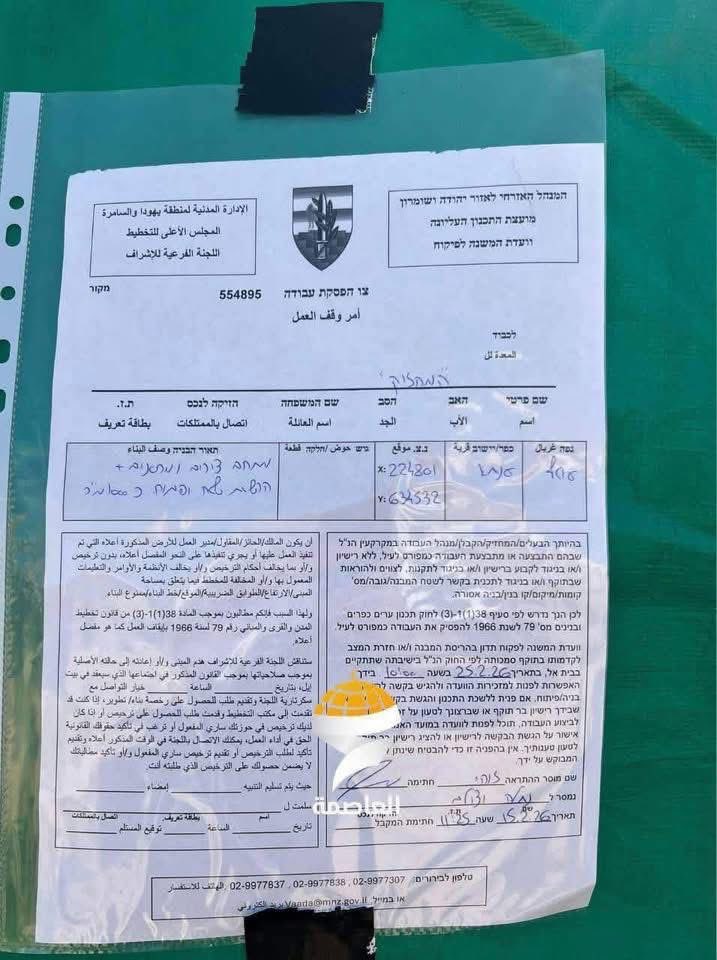 המנהל האזרחי לאזור יהודה ושומרון
מועצת התכנון העליונה
וועדת המשנה לפיקוח
الإدارة المدنية لمنطقة يهودا والسامرة
المجلس الأعلى للتخطيط
اللجنة الفرعية للإشراف
צו הפסקת עבודה
554895
מקור
أمر وقف العمل
לכבוד
المعدة لل
"המחזיק"
שם פרטי האב הסב שם המשפחה הזיקה לנכס ת.ז.
اسم الأب الجد اسم العائلة اتصال بالممتلكات بطاقة تعريف
נפה كפר/יישוב قرية נ.צ. موقع גוש حوض /חלקה قطعة תאור הבניה وصف البناء
ענתא
X: 224801
Y: 634532
בהיותך הבעלים/המחזיק/הקבלן/מנהל העבודה במקרקעין הנ"ל
שבהם התבצעה או מתבצעת העבודה כמפורט לעיל, ללא רישיון
ו/או בניגוד לקבוע ברישיון ו/או בניגוד לתקנות, לצווים ולהוראות
שבתוקף ו/או בניגוד לתכנית בקשר לשטח המבנה/גובה/מס'
קומות/מיקום/קו בנין/בניה אסורה.
לכן הנך נדרש לפי סעיף 38(1)-(3) לחוק תכנון ערים כפרים
ובניינים מס' 79 לשנת 1966 להפסיק את העבודה כמפורט לעיל.
וועדת המשנה לפיקוח תדון בהריסת המבנה ו/או חזרת המצב
לקדמותו בתוקף סמכותה לפי החוק הנ"ל בישיבתה שתתקיים
בבית אל, בתאריך 25.2.26 בשעה 10:00 בידך
האפשרות לפנות למזכירות הוועדה ולהגיש בקשה
בניה/פיתוח, אם פנית ללשכת התכנון והגשת בקשה
שבידך רישיון בר תוקף או שברצונך לטעון על
לביצוע העבודה, תוכל לפנות לוועדה במועד
אישור על הגשת הבקשה לרישיון או להציג רישיון
לטעון טענותיך. אין בהפניה זו כדי להבטיח שינתן
המבוקש על ידך.
שם מוסר ההתראה חתימה
נמסר ל
תאריך 15.2.26 שעה 11:25 חתימת המקבל
أن يكون المالك/الحائز/المقاول/مدير العمل للأرض المذكورة أعلاه التي تم
تنفيذ العمل عليها أو يجري تنفيذها على النحو المفصل أعلاه، بدون ترخيص
و/أو بما يخالف أحكام الترخيص و/أو يخالف الأنظمة والأوامر والتعليمات
المعمول بها و/أو المخالفة للمخطط فيما يتعلق بمساحة
المبنى/الارتفاع/الطوابق الضريبية/الموقع/خط البناء/ممنوع البناء.
ولهذا السبب فإنكم مطالبون بموجب المادة 38(1)-(3) من قانون تخطيط
المدن والقرى والمباني رقم 79 لسنة 1966 بإيقاف العمل كما هو مفصل
أعلاه.
ستناقش اللجنة الفرعية للإشراف هدم المبنى و/أو إعادته إلى حالته الأصلية
بموجب صلاحياتها بموجب القانون المذكور في اجتماعها الذي سيعقد في بيت
إيل، بتاريخ الساعة خيار التواصل مع
سكرتارية اللجنة وتقديم طلب للحصول على رخصة بناء/تطوير، إذا كنت قد
تقدمت إلى مكتب التخطيط وقدمت طلب للحصول على ترخيص أو اذا كان
لديك ترخيص في حوزتك ساري المفعول أو ترغب في تأكيد حقوقك القانونية
الحق في أداء العمل، يمكنك الاتصال باللجنة في الوقت المذكور أعلاه وتقديم
تأكيد لطلب الترخيص أو تقديم ترخيص ساري المفعول و/أو تأكيد مطالباتك
لا يضمن حصولك على الترخيص الذي طلبته أنت.
حيث يتم تسليم التنبيه إمضاء
سلمت ل
اسم بطاقة تعريف اتصال بالممتلكات
تاريخ الساعة توقيع المستلم
العاصمة
טלפון לבירורים: 02-9977307 , 02-9977838 , 02-9977837 الهاتف للاستفسار
או במייל, Vaada@mnz.gov.il بريد إلكتروني